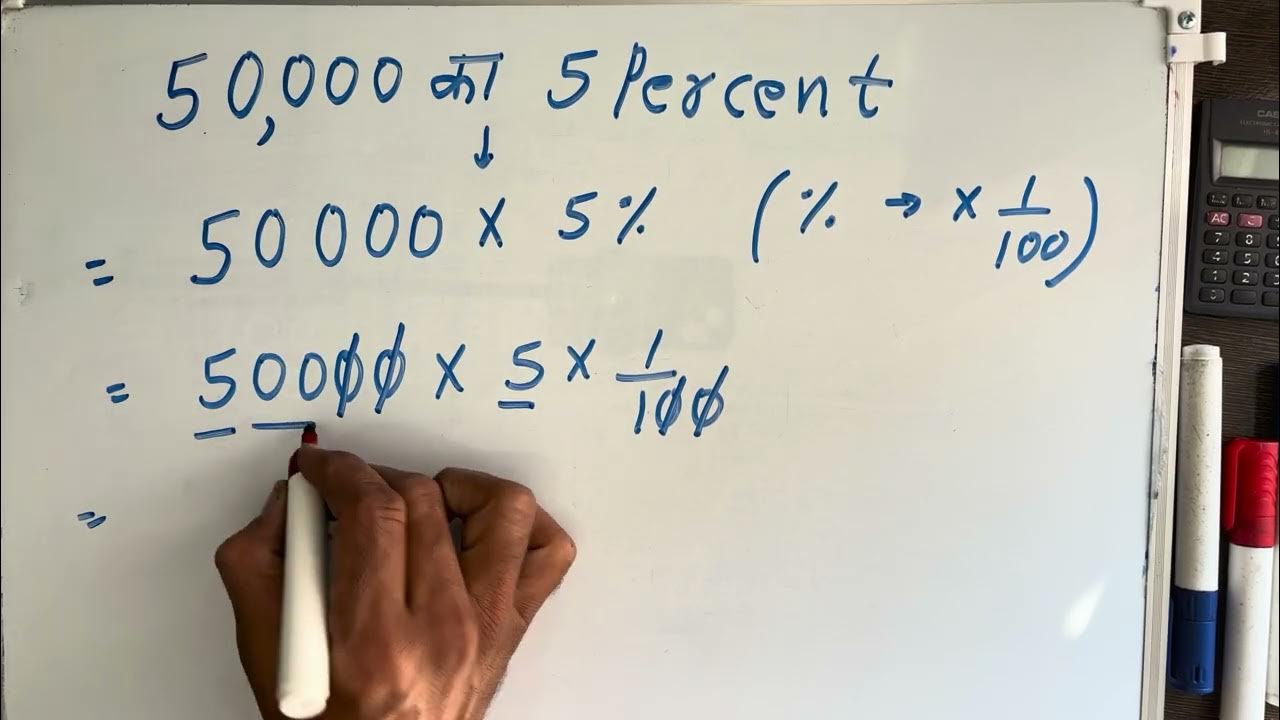 50,000 का 5 Percent
↓
= 50000 × 5% (% → × 1/100)
= 50000 × 5 × 1/100
=
CAS
AC
7 8
4 5
1 2
0